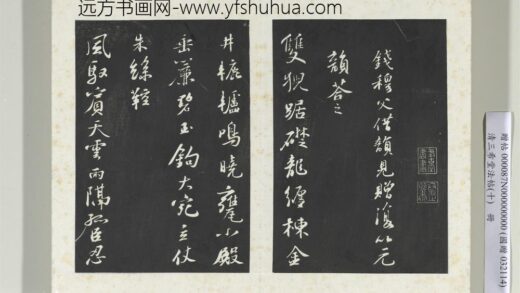 远方书画网-www.yfshuhua.com
錢穆父借韻見贈復以元
韻荅之
雙猊踞礎龍纏棟金
井轆轤鳴曉甕小殿
垂簾碧玉鉤大宛立仗
朱絲鞚
風馭賓天雲雨隔孤臣忍
贈帖 000087N000000000 (國贈 032114)
清三希堂法帖(十) 冊